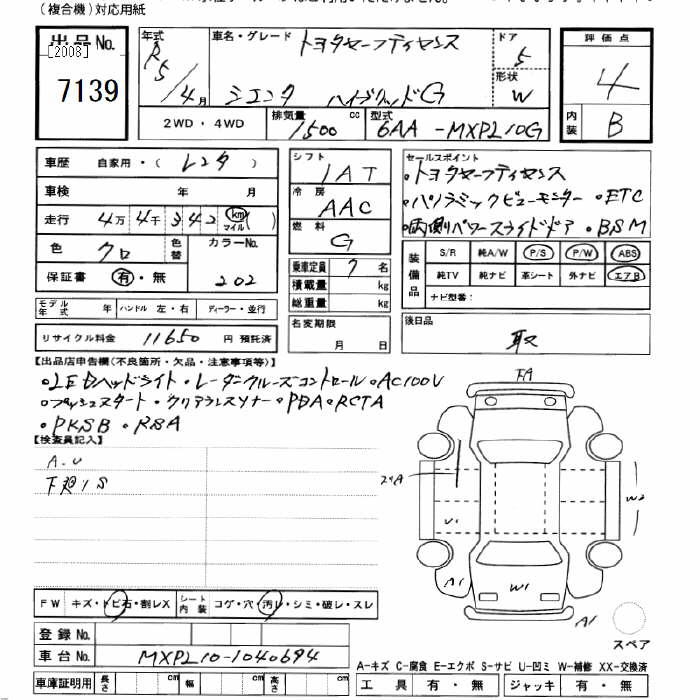 (複合機)対応用紙
出品No.
[2008]
7139
年式 R5/4月
車名・グレード トヨタセーフティセンス
シエンタ ハイブリッドG
ドア 5
形状 W
2WD・4WD
排気量 1500 cc
型式 6AA-MXPL10G
評価点 4
内装 B
車歴 自家用・( レンタ )
車検 年 月
走行 4万 4千 342 km マイル ( )
色 クロ 色替
カラーNo. 202
保証書 有・無
モデル年式 ハンドル 左・右 ディーラー・並行
リサイクル料金 11650 円 預託済
シフト IAT
冷房 AAC
燃料 G
乗車定員 7 名
積載量 kg
総重量 kg
名変期限 月 日
セールスポイント
・トヨタセーフティセンス
・パノラミックビューモニター ・ETC
・両側パワースライドドア ・BSM
装備品 S/R 純A/W P/S P/W ABS
純TV 純ナビ 革シート 外ナビ エアB
ナビ型番:
後日品 取
【出品店申告欄(不良箇所・欠品・注意事項等)】
・LEDヘッドライト・レーダークルーズコントロール・AC100V
・プッシュスタート・クリアランスソナー・PDA・RCTA
・PKSB・RSA
【検査員記入】
A.U
下廻りS
FA
U1
W2
A1
W1
A1
スペア
FW キズ・トビ石・割レX
シート内装 コゲ・穴・汚レ・シミ・破レ・スレ
登録No.
車台No. MXPL10-1040694
車庫証明用 長さ cm 幅 cm 高さ cm
A-キズ C-腐食 E-エクボ S-サビ U-凹ミ W-補修 XX-交換済
工具 有・無 ジャッキ 有・無